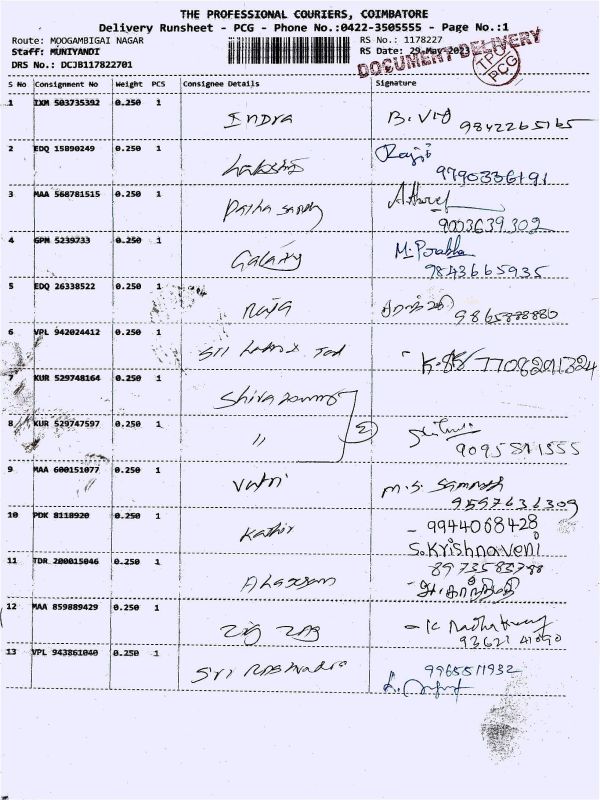 THE PROFESSIONAL COURIERS, COIMBATORE
Delivery Runsheet - PCG - Phone No.:0422-3505555 - Page No.:1
Route: MOOGAMBIGAI NAGAR RS No.: 1178227
Staff: MUNIYANDI RS Date: 29-May-2023
DRS No.: DCJB117822701
DOCUMENT DELIVERY
TPC
PCG
S No Consignment No Weight PCS Consignee Details Signature
1 IXM 503735392 0.250 1 Indra B. 9842265165
2 EDQ 15890249 0.250 1 Raji 9790336191
3 MAA 568781515 0.250 1 9003639302
4 GPM 5239733 0.250 1 Galaxy M. Prabha 9843665935
5 EDQ 26338522 0.250 1 Raja 9865888880
6 VPL 942024412 0.250 1 Sri 7708291324
7 KUR 529748164 0.250 1
8 KUR 529747597 0.250 1 " 2 9095511555
9 MAA 600151077 0.250 1 M.S. 9597636309
10 PDK 8118920 0.250 1 Kathir - 9944068428
S.Krishnaveni
11 TDR 200015046 0.250 1 8973583788
12 MAA 859889429 0.250 1 Zig Zag
13 VPL 943861040 0.250 1 Sri 9965511932